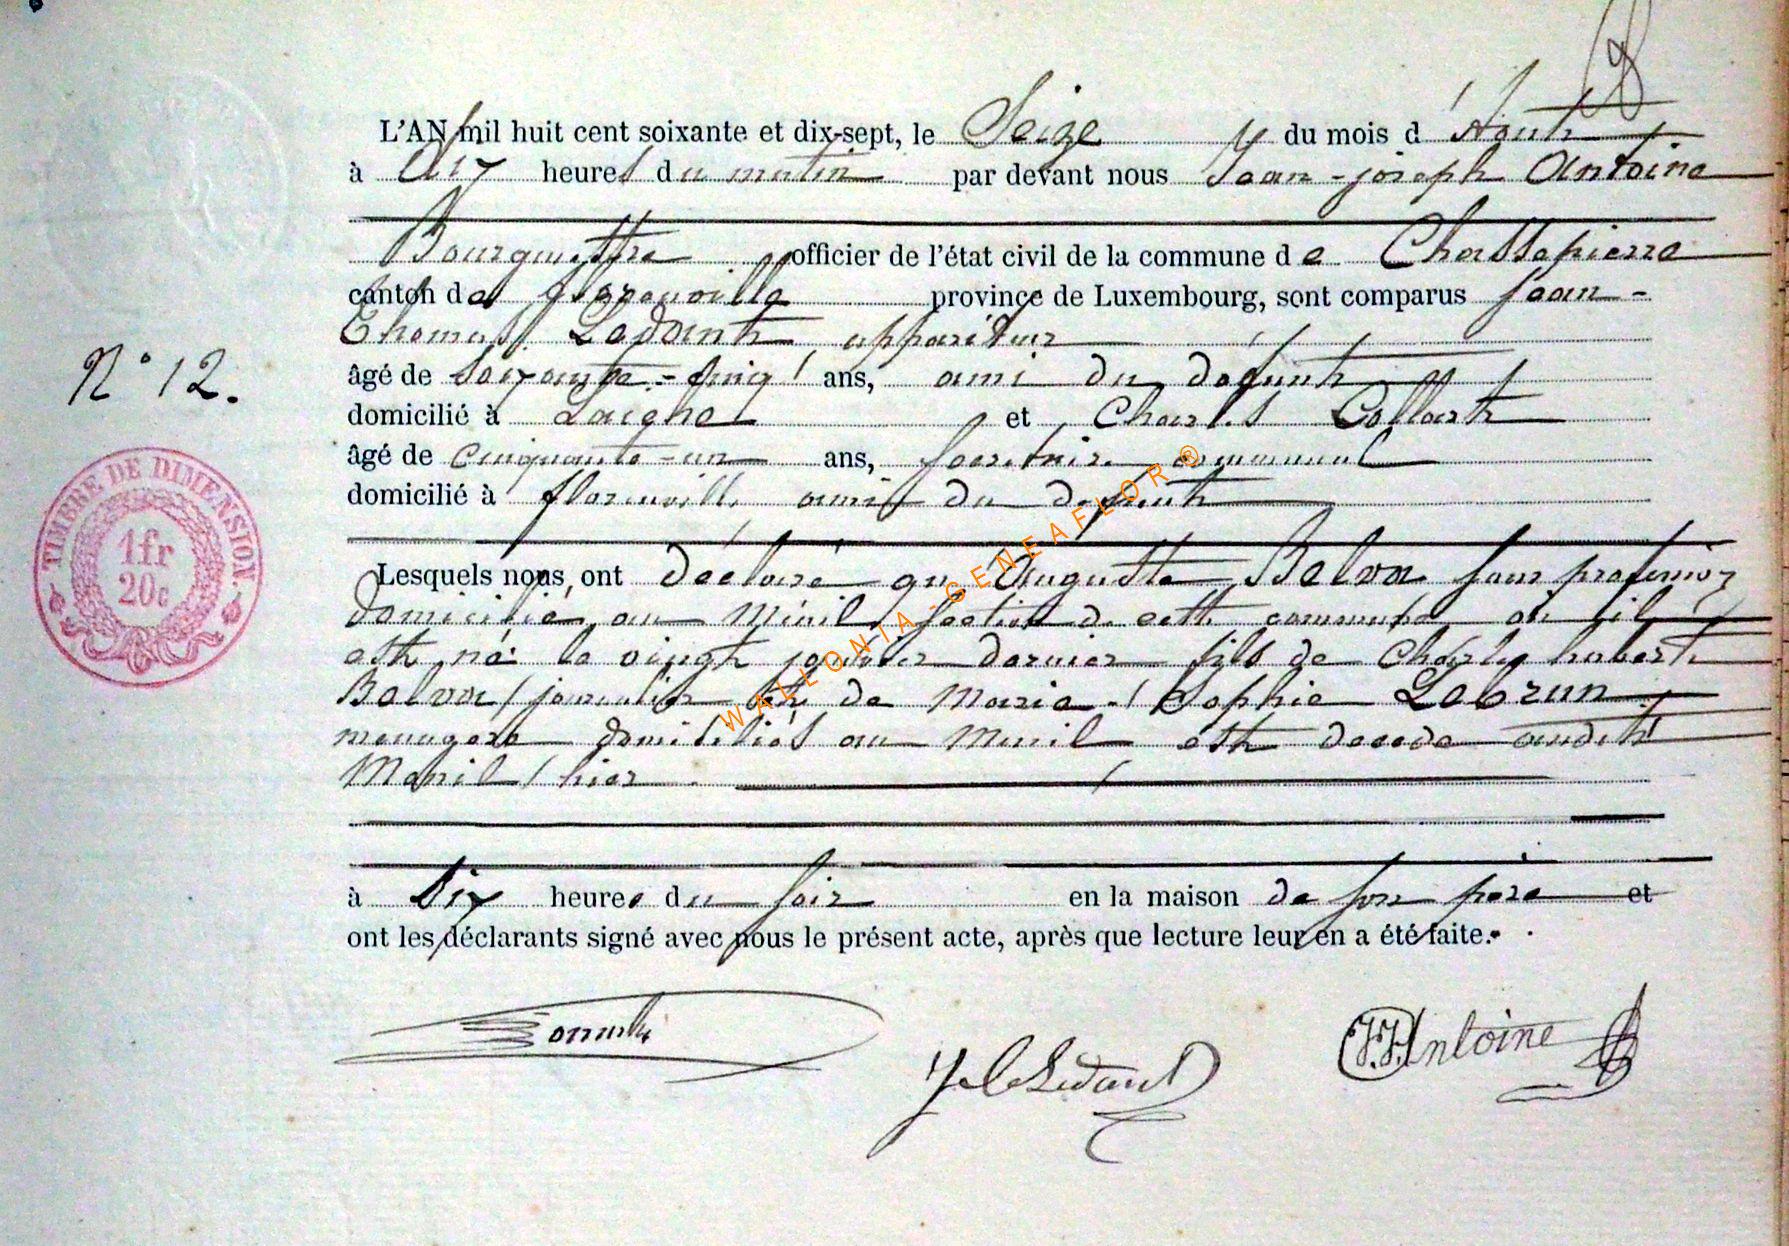 L'AN mil huit cent soixante et dix-sept, le Seize du mois d'Août
à dix heures du matin par devant nous Jean-joseph Antoine
Bourgmestre officier de l'état civil de la commune de Chassepierre
canton de florenville province de Luxembourg, sont comparus Jean-
Thomas Ledant appariteur
N° 12.
âgé de soixante-cinq ans, ami du defunt
domicilié à Laiche et Charles Collart
âgé de cinquante-un ans, secretaire communal
domicilié à florenville ami du defunt
TIMBRE DE DIMENSION.
1fr
20c
Lesquels nous ont déclaré que Auguste Belva sans profession
domicilié au Ménil section de cette commune où il
est né le vingt janvier dernier fils de Charles hubert
Belva journalier et de Marie-Sophie Lebrun
menagere domiciliés au Menil est decede audit
Menil hier
à six heures du soir en la maison de son pere et
ont les déclarants signé avec nous le présent acte, après que lecture leur en a été faite.
Ledant
J.J. Antoine
WALLONIA-GENEAFLOR ®